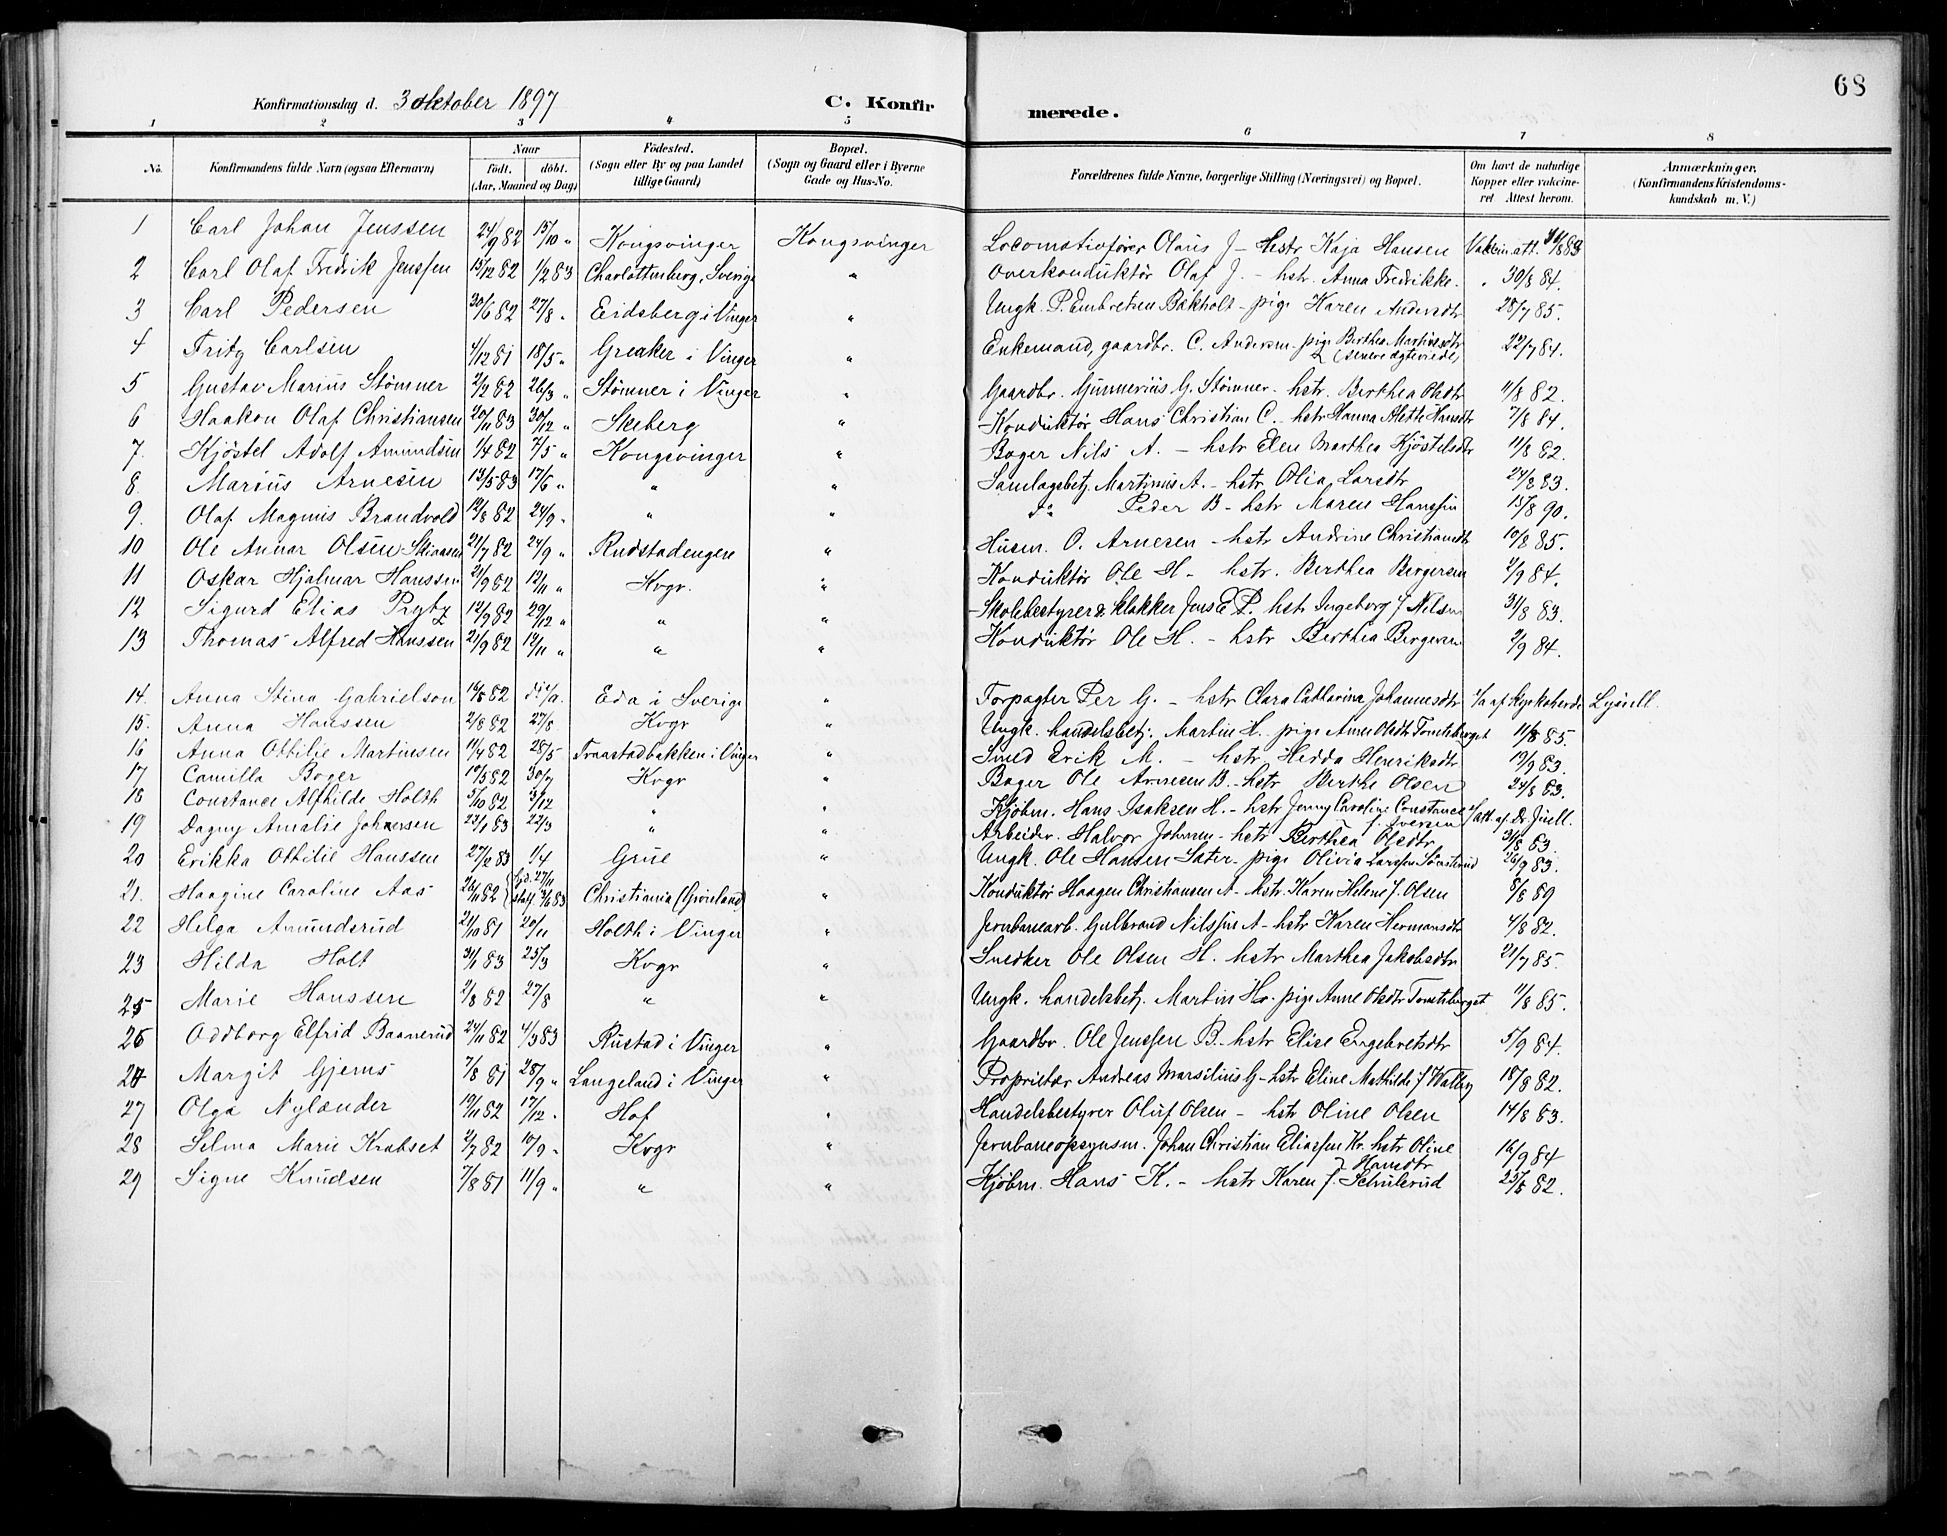 68
Konfirmationsdag d. 3 oktober 1897 C. Konfirmerede.
1 2 3 4 5 6 7 8
No. Konfirmandens fulde Navn (ogsaa Efternavn) Naar født. døbt. (Aar, Maaned og Dag) Fødested. (Sogn eller By og paa Landet tillige Gaard) Bopæl. (Sogn og Gaard eller i Byerne Gade og Hus-No. Forældrenes fulde Navne, borgerlige Stilling (Næringsvei) og Bopæl. Om havt de naturlige Kopper eller vakcineret. Attest herom. Anmærkninger. (Konfirmandens Kristendomskundskab m. V.)
1 Carl Johan Jenssen 24/9 82 15/10 „ Kongsvinger Kongsvinger Locomotivfører Olaus J – hstr Kaja Hansen Vakcin.att. 83
2 Carl Olaf Fredrik Jenssen 15/12 82 1/2 83 Charlottenberg, Sverige „ Overkonduktør Olaf J. – hstr. Anna Fredrikke. „ 30/8 84.
3 Carl Pedersen 30/6 82 27/8 „ Eidsberg i Vinger „ Ungk. P. Embretsen Bakholt – pige Karen Andersdtr 28/7 85.
4 Fritz Carlsen 4/12 81 18/5 „ Greaker i Vinger „ Enkemand, gaardbr. C. Andersen – pige Berthea Martinsdtr (senere ægteviede) 22/7 84.
5 Gustav Marius Stømner 2/2 82 26/3 „ Stømner i Vinger „ Gaardbr. Gunnerius G. Stømner – hstr. Berthea Olsdtr 11/8 82.
6 Haakon Olaf Christiansen 20/11 83 30/12 „ Skeberg „ Konduktør Hans Christian C. – hstr Hanna Mette Hansdtr 7/8 84.
7. Kjøstel Adolf Amundsen 1/4 82 7/5 „ Kongsvinger „ Bager Nils A. – hstr Elen Marthea Kjøstelsdtr 11/8 82.
8 Marius Arnesen 13/5 83 17/6 „ „ „ Samlagsbetj. Martinius A. – hstr Olia Larsdtr 24/8 83.
9. Olaf Magnus Brandvold 12/8 82 24/9 „ „ „ do Peder B – hstr Maren Hanssen 15/8 90.
10 Ole Annar Olsen 21/7 82 24/9 „ Rudstadengen „ Husm. O. Arnesen – hstr Andrine Christiansdtr 10/8 85.
11 Oskar Hjalmar Hanssen 21/9 82 12/11 „ Kvgr. „ Konduktør Ole H – hstr. Berthea Bergersen 2/9 84.
12 Sigurd Elias Pryts 12/9 82 29/12 „ „ „ Skolebestyrer & klokker Jens E. P. hstr Ingeborg f Nilsen 31/8 83.
13 Thomas Alfred Hanssen 21/9 82 12/11 „ „ „ Konduktør Ole H. – hstr Berthea Bergersen 2/9 84.
14. Anna Stina Gabrielson 16/8 82 Eda i Sverige „ Torpagter Per G. – hstr Clara Catharina Johannesdtr
15. Anna Hanssen 2/8 82 27/8 Kvgr „ Ungk. handelsbetj. Martin H. pige Anne Olsdtr Tomtsberget 11/8 85.
16 Anna Ottilie Martinsen 11/4 82 28/5 Traastadbakken i Vinger „ Smed Erik M. – hstr Hedda Henriksdtr 19/9 83.
17 Camilla Bager 19/5 82 30/7 Kvgr „ Bager Ole Arnesen B. – hstr Berthe Olsen 24/8 83.
18 Constance Alfhilde Holth 5/10 82 3/12 „ „ Kjøbm. Hans Isaksen H. – hstr Jenny Caroline Constance f. Iversen att. af Dr Juell.
19 Dagny Amalie Johnsen 23/1 83 22/3 „ „ Arbeider Halvor Johnsen – hstr Berthea Olsdtr 31/8 83.
20 Erikka Ottilie Hanssen 27/2 83 1/4 Grue „ Ungk. Ole Hansen Sæter – pige Olivia Larssen 26/9 83.
21. Haagine Caroline Aas 26/11 82 27/11 83 Christiania (Grønland) „ Konduktør Haagen Christiansen A – hstr. Karen Helene f. Olsen 8/8 89
22 Helga Amundsrud 21/10 81 20/11 Holth i Vinger „ Jernbanearb. Gulbrand Nilssen A – hstr Karen Hermansdtr 4/8 82.
23 Hilda Holt 31/1 83 25/3 Kvgr „ Snedker Ole Olsen H. hstr Marthea Jakobsdtr 21/7 85.
25 Marie Hanssen 2/8 82 27/8 „ „ Ungk. handelsbetj. Martin H. pige Anne Olsdtr Tomtsberget. 11/8 85.
26 Oddborg Elfrid Baanerud 24/11 82 4/3 83 Rustad i Vinger „ Gaardbr. Ole Jenssen B – hstr Elise Engebretsdtr 5/9 84.
Margit Gjems 7/8 81 28/9 „ Langeland i Vinger „ Proprietær Andreas Marsilius G – hstr Eline Mathilde f Walby 18/8 82.
27 Olga Nylænder 19/11 82 17/12 „ Hof „ Handelsbestyrer Oluf Olsen – hstr Oline Olsen 14/8 83.
28 Selma Marie Krabset 2/7 82 10/9 „ Kvgr „ Jernbaneopsynsm. Johan Christian Eliassen Kr. hstr Oline Hansdtr 16/9 84
29 Signe Knudsen 7/8 81 11/9 „ „ „ Kjøbm. Hans K. – hstr Karen f. Schulerud 25/8 82.